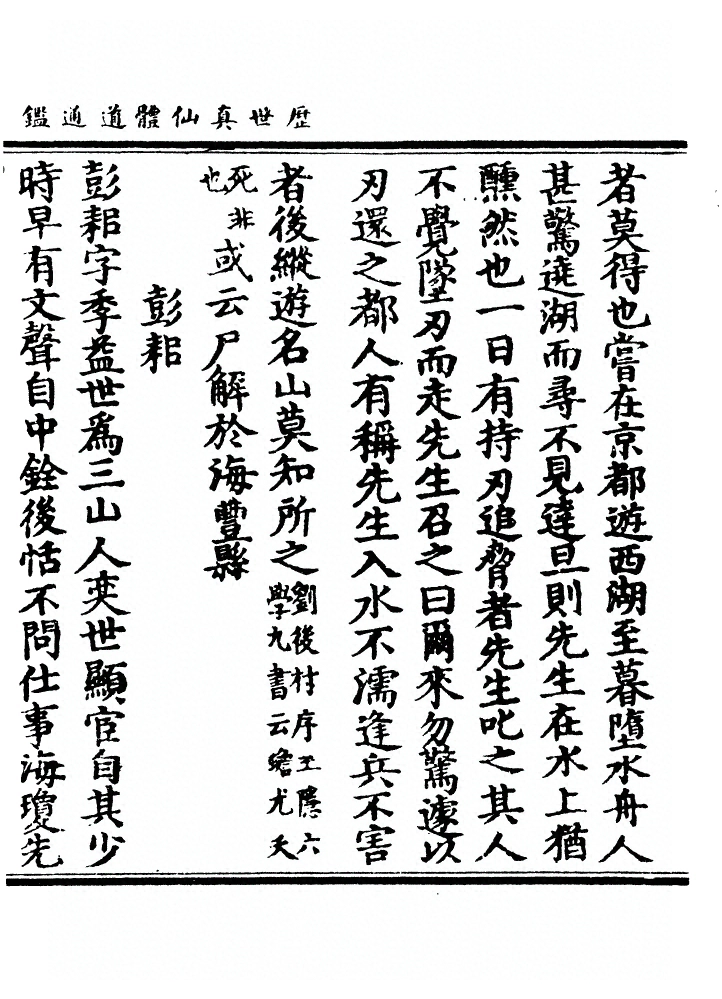 歷世真仙體道通鑑
者莫得也嘗在京都遊西湖至暮墮水舟人
甚驚遶湖而尋不見達旦則先生在水上猶
醺然也一日有持刃追脅者先生叱之其人
不覺墜刃而走先生召之曰爾來勿驚遽以
刃還之都人有稱先生入水不濡逢兵不害
者後縱遊名山莫知所之劉後村序王隱六
學九書云蟾尤夭
死非
也
或云尸解於海豐縣
彭耜
彭耜字季益世爲三山人奕世顯宦自其少
時早有文聲自中銓後恬不問仕事海瓊先